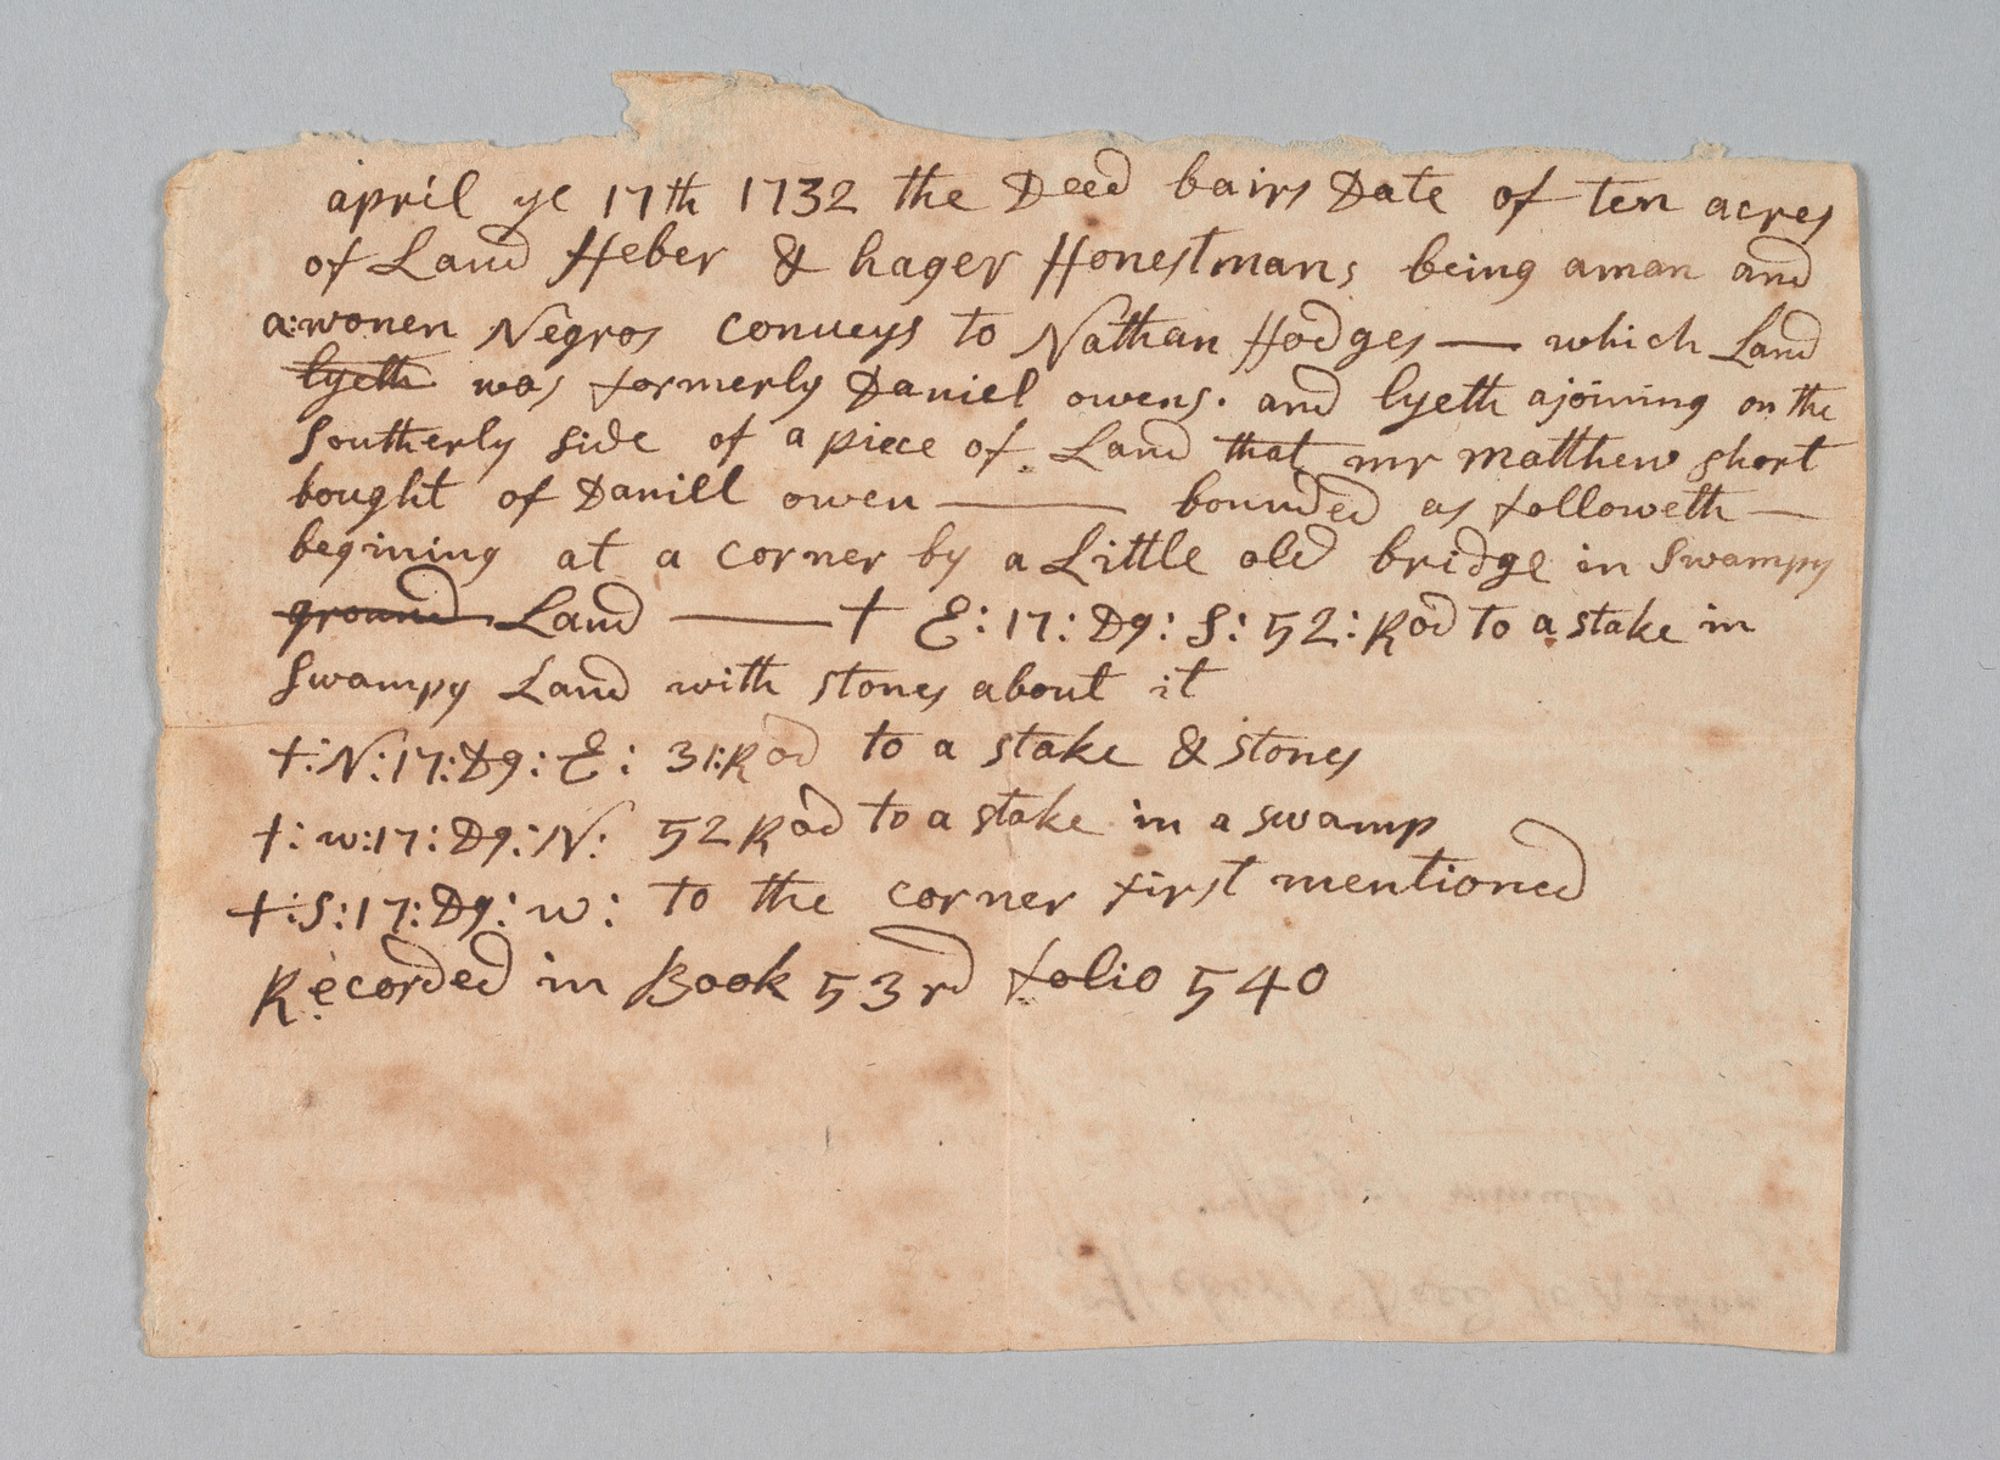 april ye 17th 1732 the Deed bairs Date of ten acres
of Land Heber & hager Honestmans being a man and
a:wonen Negros conveys to Nathan Hodges — which Land
lyeth was formerly Daniel owens. and lyeth ajoining on the
Southerly side of a piece of Land that mr matthew short
bought of Daniell owen — bounded as followeth —
begining at a corner by a Little old bridge in Swampy
ground Land — + E: 17: Dg: S: 52: Rod to a stake in
Swampy Land with stones about it
+: N: 17: Dg: E: 31: Rod to a stake & stones
+: w: 17: Dg: N: 52 Rod to a stake in a swamp
+: S: 17: Dg: w: to the corner first mentioned
Recorded in Book 53rd folio 540